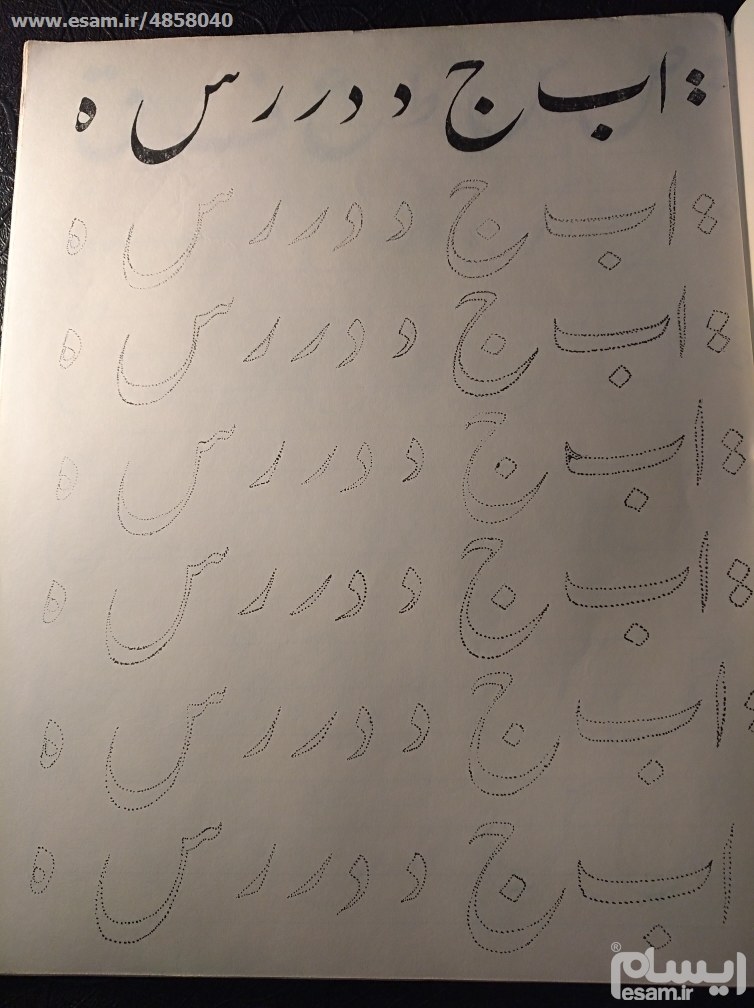 www.esam.ir/4858040
ا ب ج د د ر ر س ه
ا ب ج د د ر ر س ه
ا ب ج د د ر ر س ه
ا ب ج د د ر ر س ه
ا ب ج د د ر ر س ه
ا ب ج د د ر ر س ه
ا ب ج د د ر ر س ه
ایسام®
esam.ir